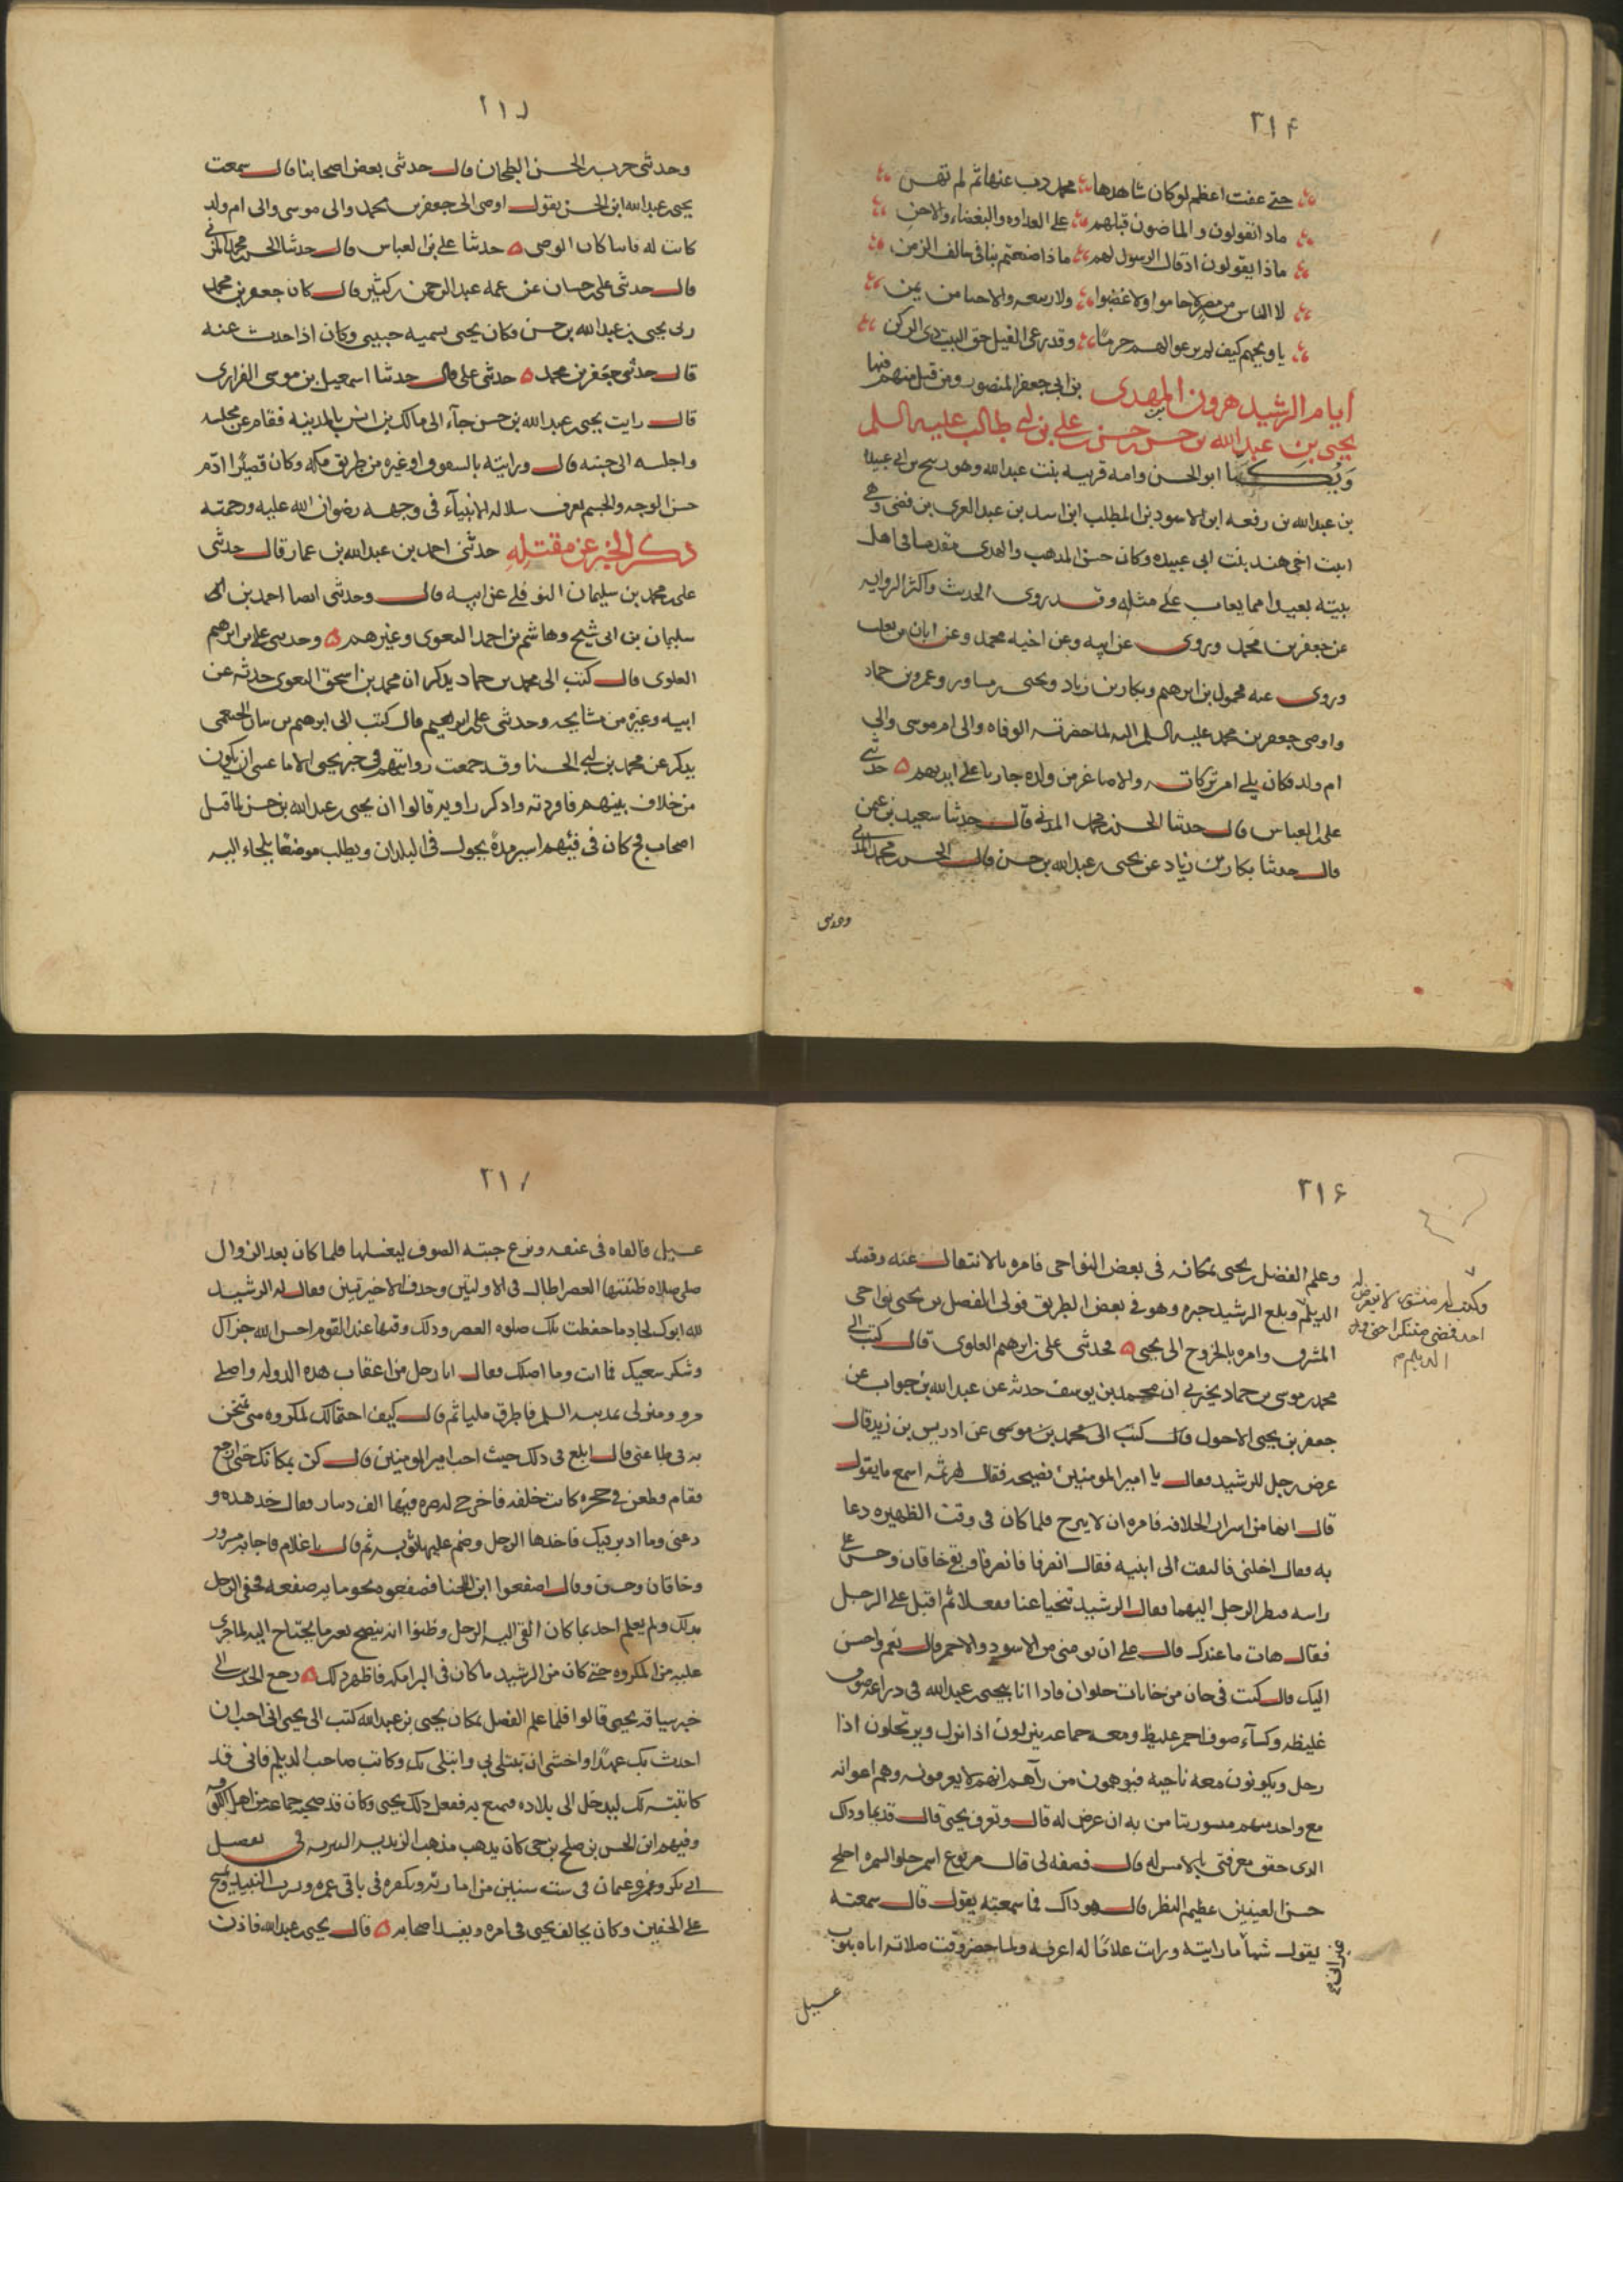 ٢١٤
حتى عفت اعظم لو كان شاهدها محمد ذب عنها ثم لم تهن
ماذا تقولون والماضون قبلهم على العداوه والبغضاء والاحن
ماذا يقولون اذ قال الرسول لهم ماذا صنعتم بنا فى سالف الزمن
لا الناس من مضر حاموا ولا غضبوا ولا ربيعه والاحيا من يمن
يا ويحهم كيف لم يرعوا لهم حرمًا وقد رعى الفيل حق البيت ذى الركن
ايام الرشيد هرون المهدى بن ابى جعفر المنصور ومن قتل منهم فيها
يحيى بن عبد الله بن حسن بن حسن بن على بن ابى طالب عليه السلم
ويكنى ابا الحسن وامه قريبه بنت عبد الله وهو ذبيح بن ابى عبيدة
بن عبد الله بن زمعه ابن الاسود بن المطلب ابن اسد بن عبد العزى بن قصى وهى
ابنت اخى هند بنت ابى عبيده وكان حسن المذهب والهدى مقدما فى اهل
بيته بعيدا مما يعاب على مثله وقد روى الحديث واكثر الروايه
عن جعفر بن محمد وروى عن ابيه وعن اخيه محمد وعن ابان بن تغلب
وروى عنه مخول بن ابرهيم وبكار بن زياد ويحيى بن مساور وعمرو بن حماد
واوصى جعفر بن محمد عليه السلم اليه لما حضرته الوفاه والى ام موسى والى
ام ولد فكان يلى امر تركاته والاصاغر من ولده جاريا على ايديهم حدثنى
على بن العباس قال حدثنا الحسن بن محمد المدنى قال حدثنا سعيد بن عثمن
قال حدثنا بكار بن زياد عن يحيى بن عبد الله بن حسن قال الحسن بن محمد المدنى
وحدثنى
٢١٥
وحدثنى حرب بن الحسن الطحان قال حدثنى بعض اصحابنا قال سمعت
يحيى بن عبد الله ابن الحسن يقول اوصى الى جعفر بن محمد والى موسى والى ام ولد
كانت له فاينا كان الوصى حدثنا على بن العباس قال حدثنا الحسن بن محمد المزنى
قال حدثنى على بن حسان عن عمه عبد الرحمن بن كثير قال كان جعفر بن محمد
ربى يحيى بن عبد الله بن حسن فكان يحيى يسميه حبيبى وكان اذا حدث عنه
قال حدثنى حبيبى جعفر بن محمد حدثنى على قال حدثنا اسمعيل بن موسى الفزارى
قال رايت يحيى بن عبد الله بن حسن جآء الى مالك بن انس بالمدينه فقام عن مجلسه
واجلسه الى جنبه قال ورايته بالسوق او غيره من طريق مكه وكان قصيرًا ادم
حسن الوجه والجسم تعرف سلاله الانبيآء فى وجهه رضوان الله عليه ورحمته
ذكر الخبر عن مقتله حدثنى احمد بن عبد الله بن عمار قال حدثنى
على بن محمد بن سليمان النوفلى عن ابيه قال وحدثنى ايضا احمد بن
سليمان بن ابى شيخ وهاشم بن احمد البغوى وغيرهم وحدثنى على بن ابرهيم
العلوى قال كتب الى محمد بن حماد يذكر ان محمد بن اسحق البغوى حدثه عن
ابيه وغيره من مشايخه وحدثنى على بن ابرهيم قال كتب الى ابرهيم بن بنان الخثعمى
يذكر عن محمد بن ابى الخنسا وقد جمعت روايتهم فى خبر يحيى الا ما عسى ان يكون
من خلاف بينهم فاوردته واذكر راويه قالوا ان يحيى بن عبد الله بن حسن لما قتل
اصحاب فخ كان فى فيئهم استتر مدة يجول فى البلدان ويطلب موضعًا يلجاء اليه
٢١٦
وعلم الفضل بن يحيى بمكانه فى بعض النواحى فامره بالانتقال عنه وقصد
الديلم وبلغ الرشيد خبره وهو فى بعض الطريق فولى الفضل بن يحيى نواحى
وكتب له منشورا لا يتعرض له
احد فمضى متنكرا حتى ورد
الديلم
المشرق وامره بالخروج الى يحيى فحدثنى على بن ابرهيم العلوى قال كتب الى
محمد بن موسى بن حماد يخبرنى ان محمد بن يوسف حدثه عن عبد الله بن جواب عن
جعفر بن يحيى الاحول قال كتب الى محمد بن موسى عن ادريس بن زيد قال
عرض رجل للرشيد فقال يا امير المومنين نصيحه فقال لهرثمه اسمع ما يقول
قال انها من اسرار الخلافه فامره ان لا يبرح فلما كان فى وقت الظهيره دعا
به فقال اخلنى فالتفت الى ابنيه فقال انصرفا فانصرفا وبقى خاقان وحسن على
راسه فنظر الرجل اليهما فقال الرشيد تنحيا عنا ففعلا ثم اقبل على الرجل
فقال هات ما عندك قال على ان تومننى من الاسود والاحمر قال نعم واحسن
اليك قال كنت فى خان من خانات حلوان فاذا انا بيحيى بن عبد الله فى دراعه صوف
غليظه وكسآء صوف احمر غليظ ومعه جماعه ينزلون اذا نزل ويرتحلون اذا
رحل ويكونون معه ناحيه فيوهمون من رآهم انهم لا يعرفونه وهم اعوانه
مع واحد منهم منشور يتامن به ان عرض له قال وتعرف يحيى قال قديما وذاك
الذى حقق معرفتى بالامس له قال فصفه لى قال مربوع اسمر حلو السمره اجلح
حسن العينين عظيم البطن قال هو ذاك فما سمعته يقول قال سمعته
يقول شيئا ما رايته ورايت غلامًا له اعرفه ولما حضر وقت صلاته اتاه بثوب
غير انى
غسيل
٢١٧
غسيل فالقاه فى عنقه ونزع جبته الصوف ليغسلها فلما كان بعد الزوال
صلى صلاه ظننتها العصر اطال فى الاولتين وحذف الاخيرتين فقال له الرشيد
لله ابوك لجاد ما حفظت تلك صلوه العصر وذلك وقتها عند القوم احسن الله جزآك
وشكر سعيك فما انت وما اصلك فقال انا رجل من اعقاب هذه الدوله واصلى
مرو ومنزلى بمدينه السلم فاطرق مليا ثم قال كيف احتمالك لمكروه متى تمتحن
به فى طاعتى قال ابلغ فى ذلك حيث احب امير المومنين قال كن بمكانك حتى ارجع
فقام وطعن فى حجره كانت خلفه فاخرج له صره فيها الف دينار فقال خذ هذه و
دعنى وما ادبر فيك فاخذها الرجل وضم عليها ثوبه ثم قال يا غلام فاجابه مسرور
وخاقان وحسن وقال اصفعوا ابن اللخنا فصفعوه نحو مايه صفعه فخفى الرجل
بذلك ولم يعلم احد بما كان القى اليه الرجل وظنوا انه ينصح بغير ما يحتاج اليه لما جرى
عليه من المكروه حتى كان من الرشيد ما كان فى البرامكه فاظهر ذلك رجع الحديث الى
خبر سياقه يحيى قالوا فلما علم الفضل بمكان يحيى بن عبد الله كتب الى يحيى انى احب ان
احدث بك عهدًا واخشى ان تبتلى بى وابتلى بك وكاتب صاحب الديلم فانى قد
كاتبته لك ليدخل الى بلاده فيمنع به ففعل ذلك يحيى وكان قد صحبه جماعه من اهل الكوفه
وفيهم ابن الحسن بن صلح بن حى كان يذهب مذهب الزيديه البتريه فى تفضيل
ابى بكر وعمر وعثمان فى ست سنين من امارته ويكفره فى باقى عمره ويشرب النبيذ ويمسح
على الخفين وكان يخالف يحيى فى امره ويفسد اصحابه قال يحيى بن عبد الله فاذن